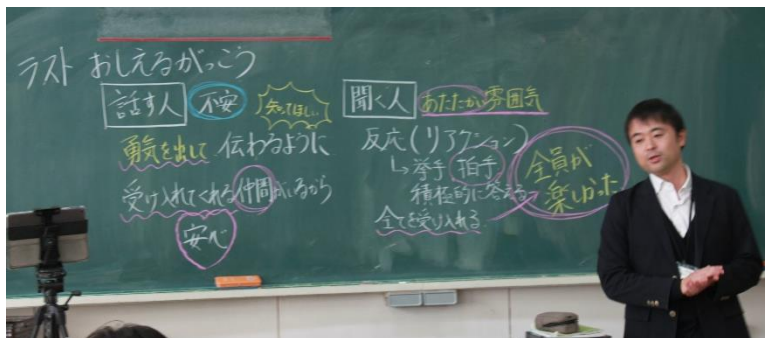 ラスト おしえるがっこう
話す人 不安 知ってほしい
勇気を出して 伝わるように
受け入れてくれる仲間がいるから
安心
聞く人 あたたかい雰囲気
反応(リアクション)
↳挙手 拍手
積極的に答える
全てを受け入れる
全員が
楽しかった